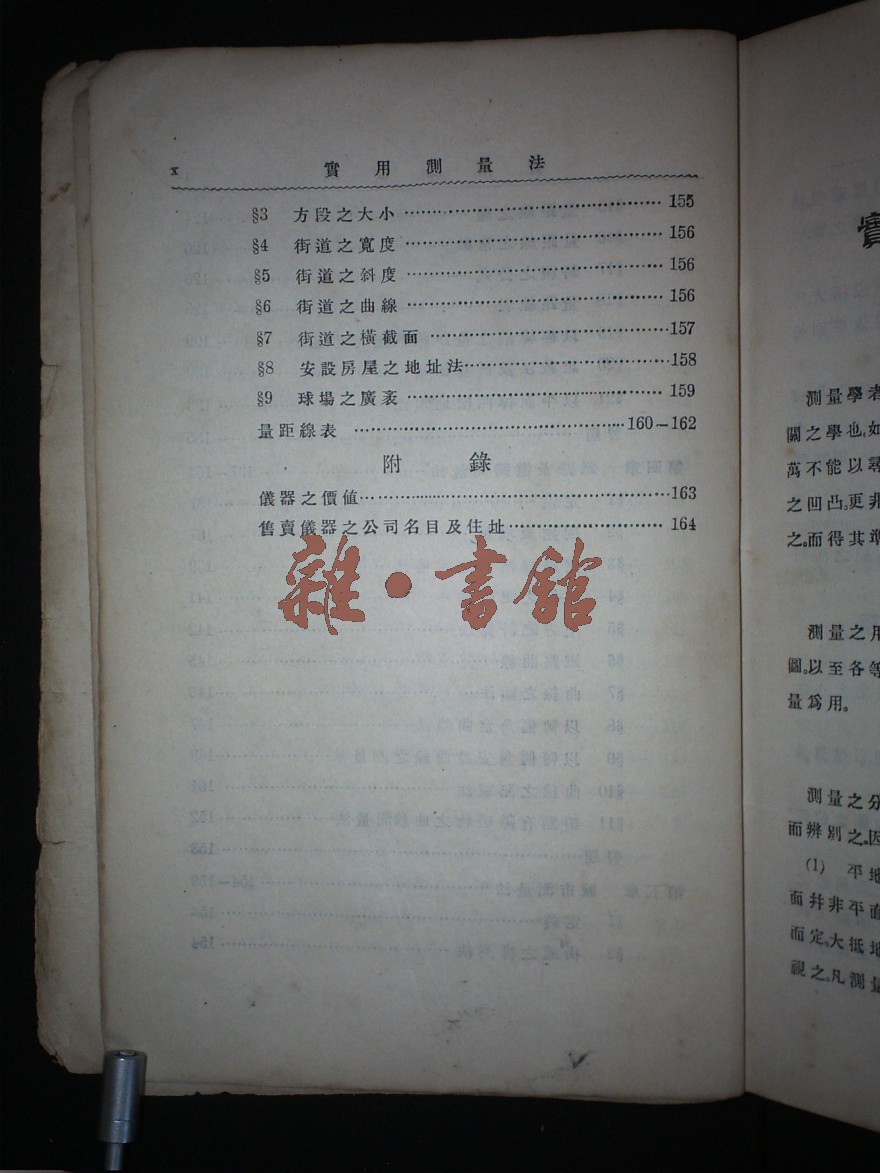 x 實用測量法
§3 方段之大小 155
§4 街道之寬度 156
§5 街道之斜度 156
§6 街道之曲線 156
§7 街道之橫截面 157
§8 安設房屋之地址法 158
§9 球場之廣袤 159
量距線表 160—162
附錄
儀器之價值 163
售賣儀器之公司名目及住址 164
雜·書館
實
測量學者
關之學也,如
萬不能以尋
之凹凸。更非
之。而得其準
測量之用
圖。以至各等
量爲用。
測量之分
而辨別之。因
(1) 平地
面幷非平面
而定。大抵地
視之。凡測量